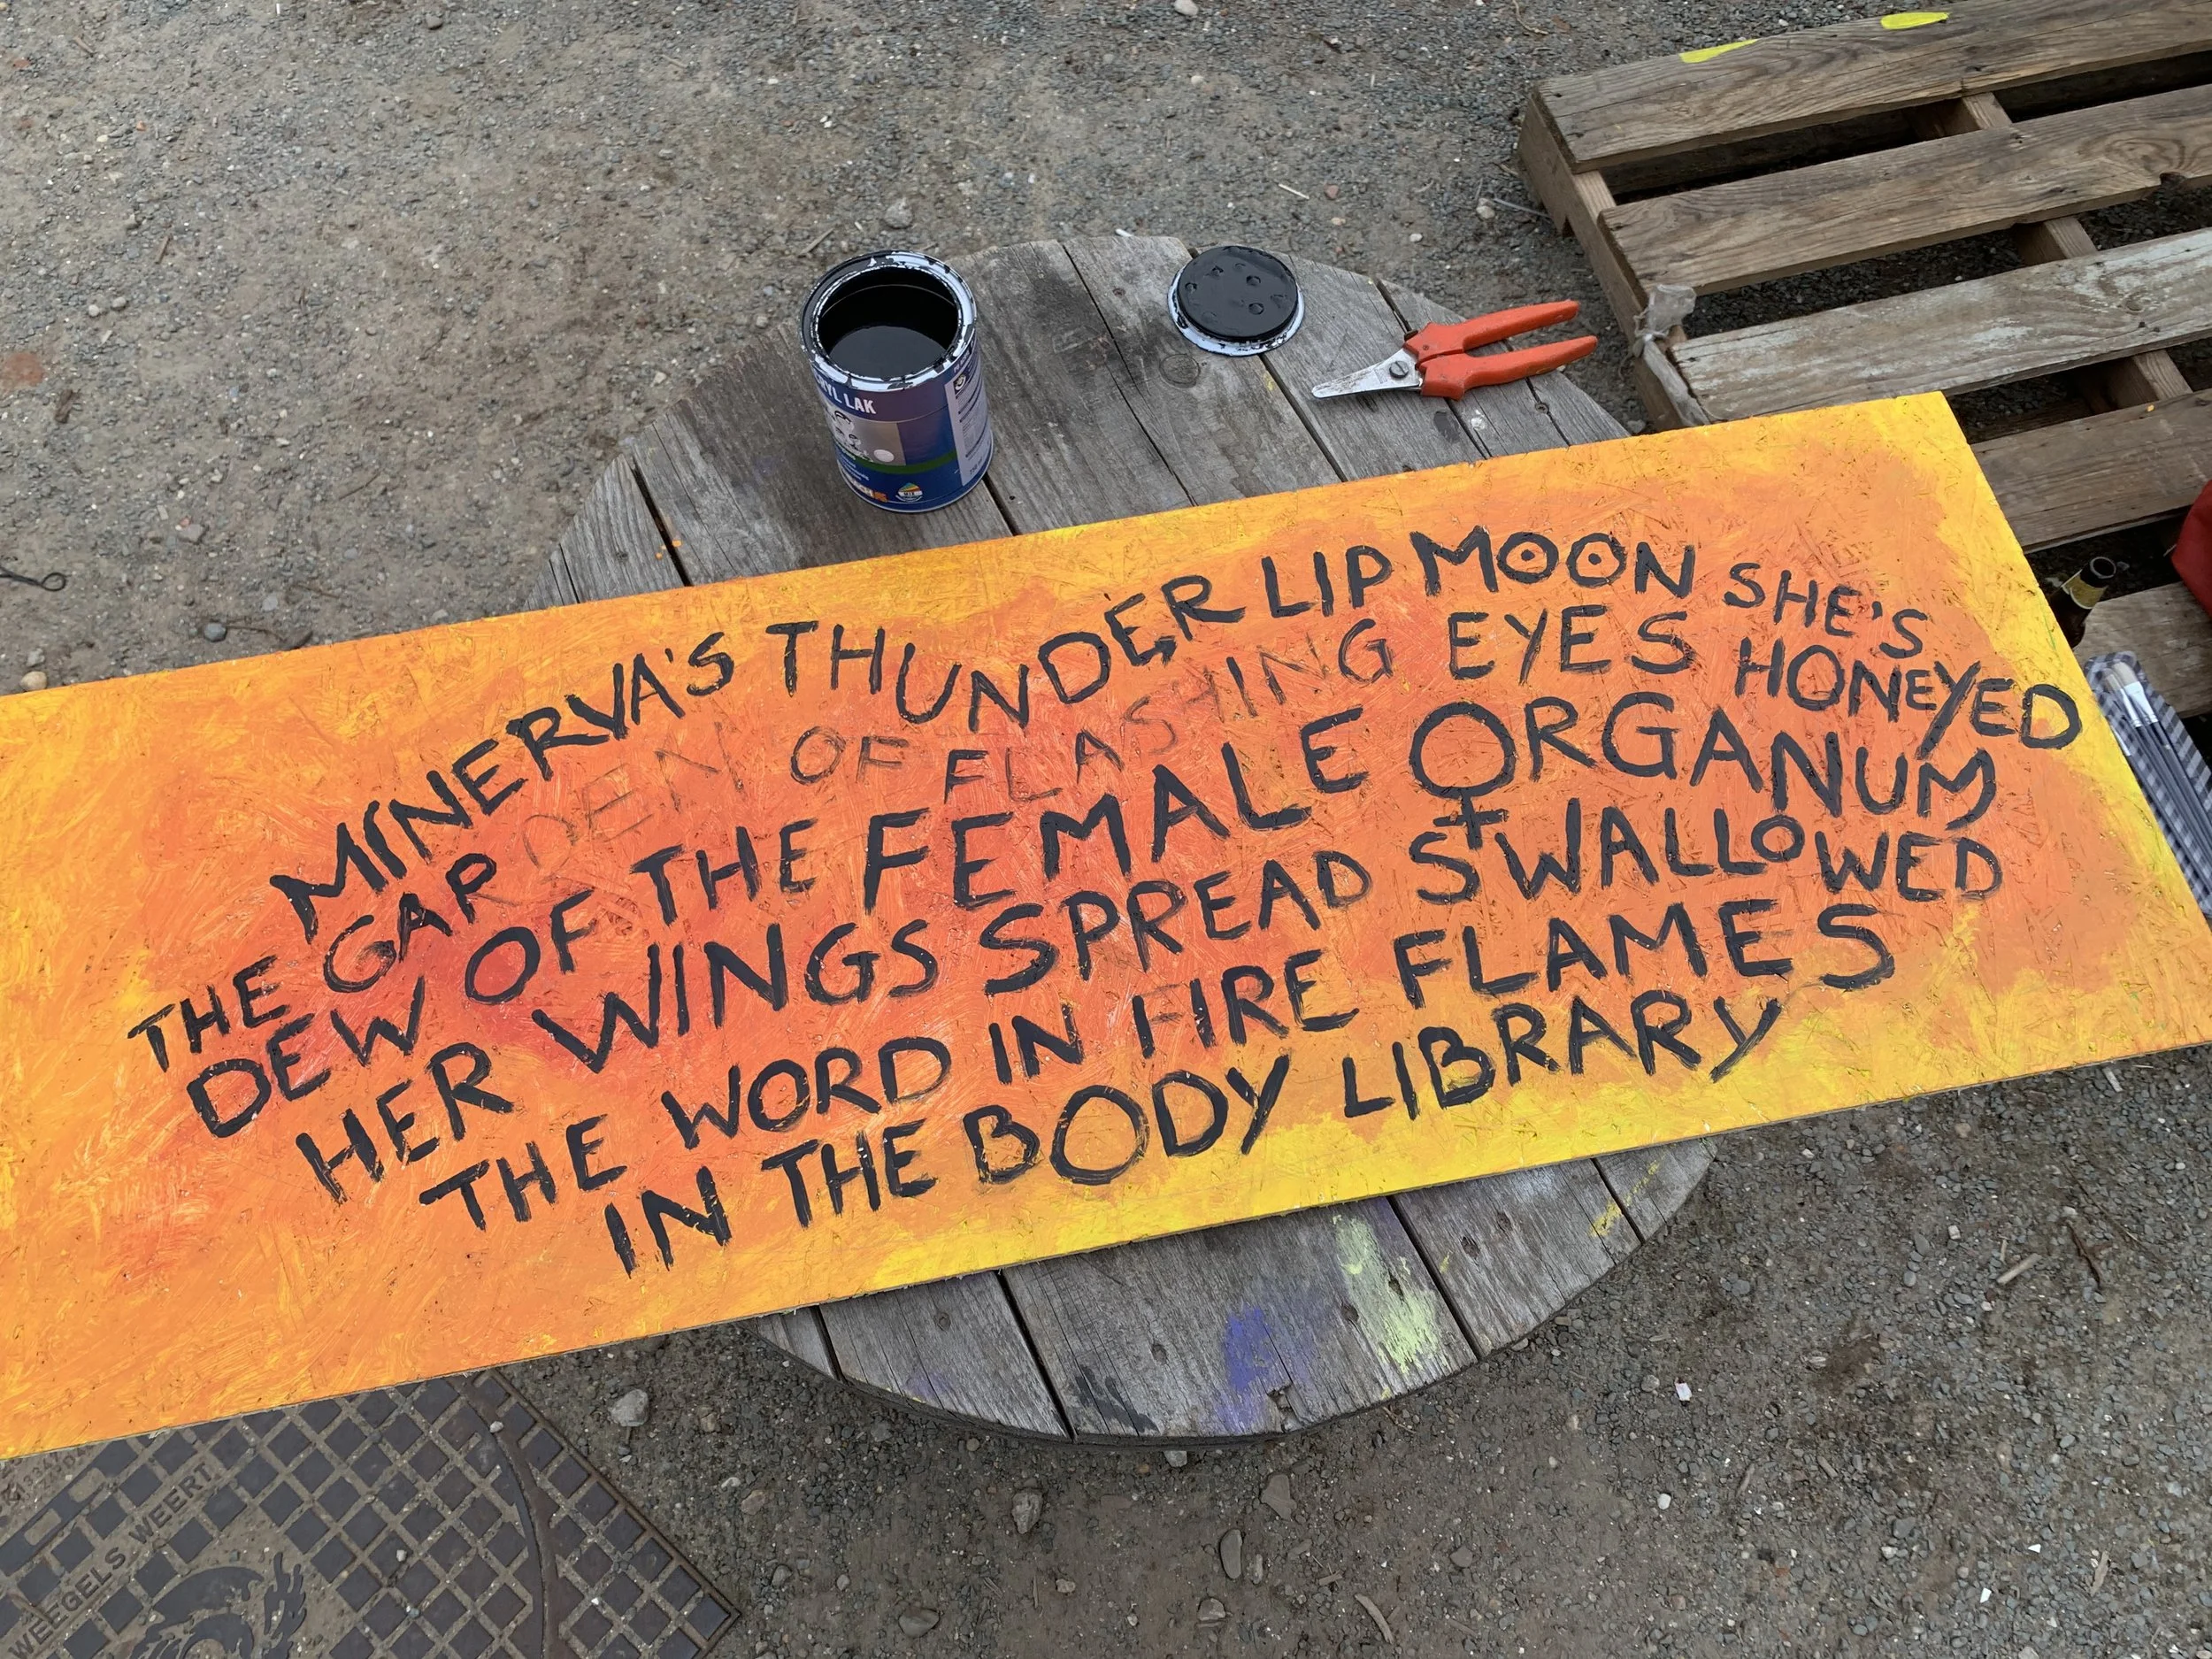 MINERVA'S THUNDER LIP MOON SHE'S
THE GARDEN OF FLASHING EYES HONEYED
DEW OF THE FEMALE ORGANUM
HER WINGS SPREAD SWALLOWED
THE WORD IN FIRE FLAMES
IN THE BODY LIBRARY
LAK
WEEGELS WEERT